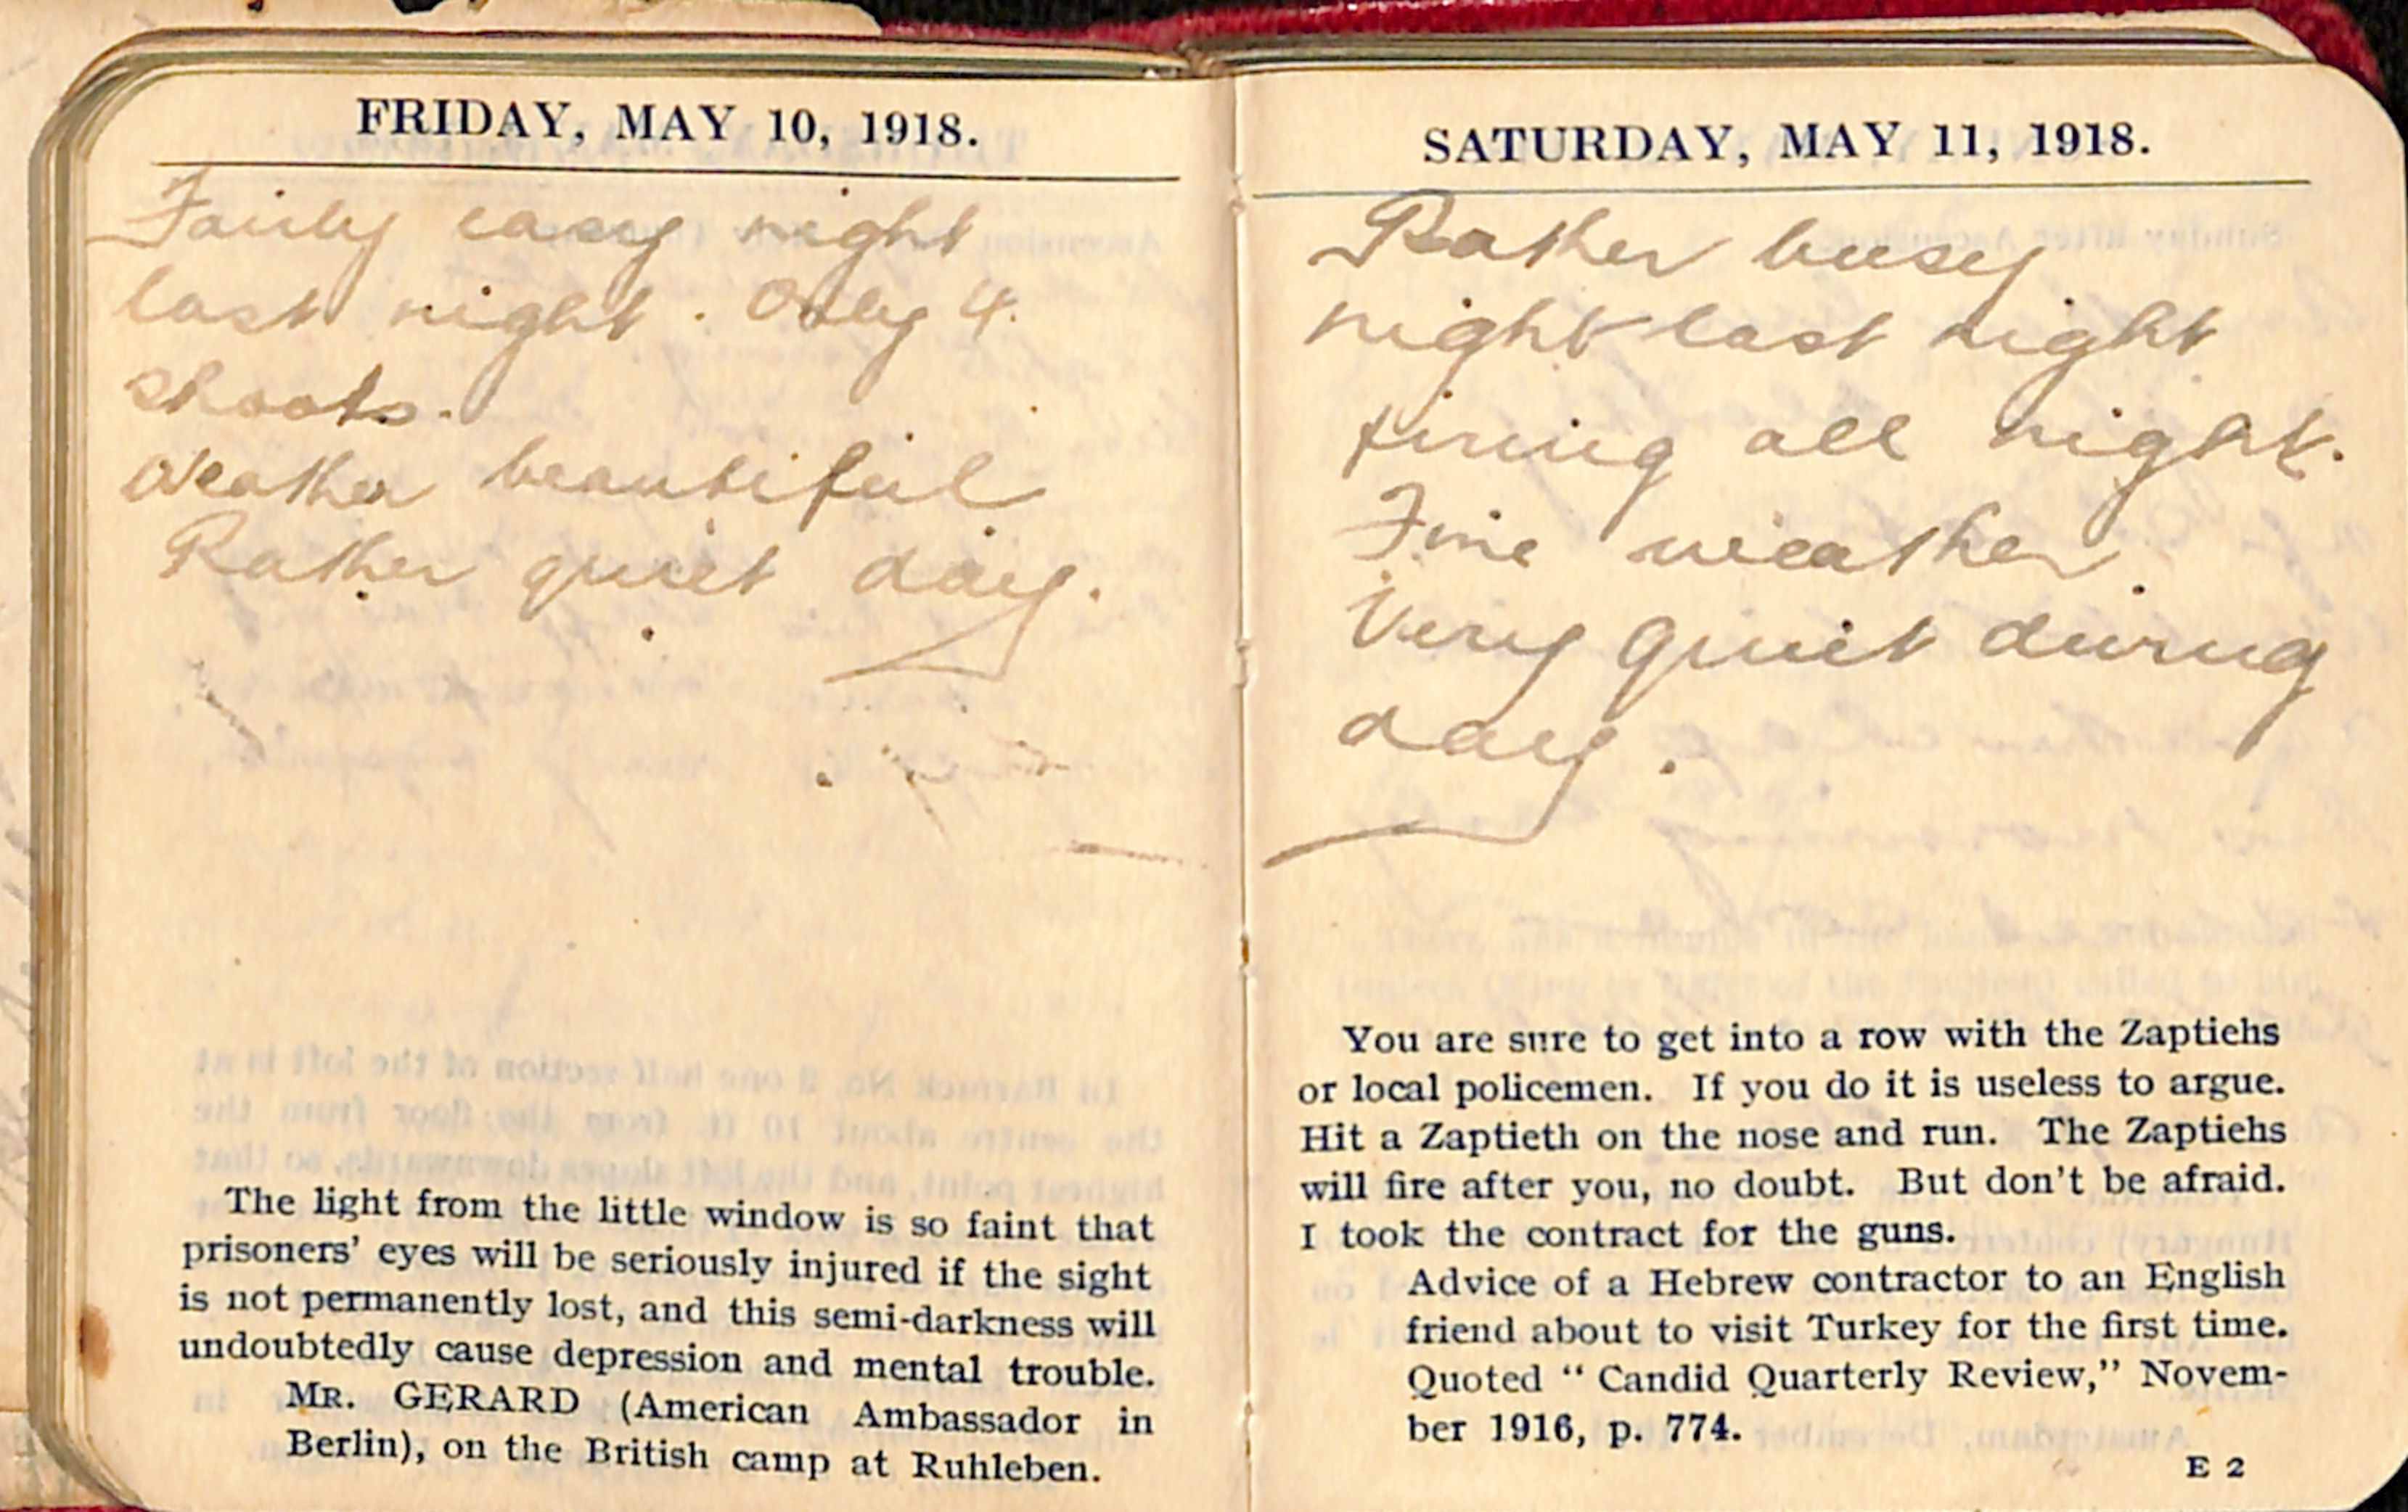 FRIDAY, MAY 10, 1918.
Fairly easy night
last night. Only 4.
shoots.
Weather beautiful
Rather quiet day.
The light from the little window is so faint that
prisoners' eyes will be seriously injured if the sight
is not permanently lost, and this semi-darkness will
undoubtedly cause depression and mental trouble.
MR. GERARD (American Ambassador in
Berlin), on the British camp at Ruhleben.
SATURDAY, MAY 11, 1918.
Rather busy
night last night
firing all night.
Fine weather.
Very quiet during
day.
You are sure to get into a row with the Zaptiehs
or local policemen. If you do it is useless to argue.
Hit a Zaptieth on the nose and run. The Zaptiehs
will fire after you, no doubt. But don't be afraid.
I took the contract for the guns.
Advice of a Hebrew contractor to an English
friend about to visit Turkey for the first time.
Quoted "Candid Quarterly Review," Novem-
ber 1916, p. 774.
E 2